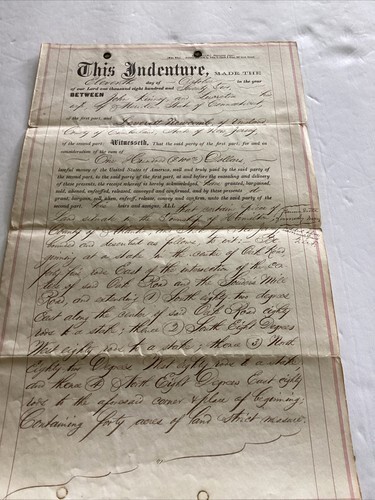 This Indenture, MADE THE
Eleventh day of in the year
of our Lord one thousand eight hundred and Seventy
BETWEEN John and his
wife of State of
of the first part, and of
County of Cumberland State of New Jersey,
of the second part: Witnesseth, That the said party of the first part, for and in
consideration of the sum of
One Hundred Dollars
lawful money of the United States of America, well and truly paid by the said party of the
second part, to the said party of the first part, at and before the ensealing and delivery
of these presents, the receipt whereof is hereby acknowledged, have granted, bargained,
sold, aliened, enfeoffed, released, conveyed and confirmed, and by these presents do
grant, bargain, sell, alien, enfeoff, release, convey and confirm, unto the said party of the
second part, heirs and assigns, ALL that certain of
Land situate in the Township of Hamilton
County of and State of New
bounded and described as follows to wit: Be
ginning at a stake in the center of Oak Road,
forty five rods East of the intersection of the cen
ters of said Oak Road and the Mill
Road, and extending (1) South eighty two degrees
East along the center of said Oak Road eighty
rods to a stake; thence (2) South Eight Degrees
West eighty rods to a stake; thence (3) North
Eighty two Degrees West eighty rods to a stake
and thence (4) North Eight Degrees East eighty
rods to the aforesaid corner & place of beginning;
Containing forty acres of land strict measure.